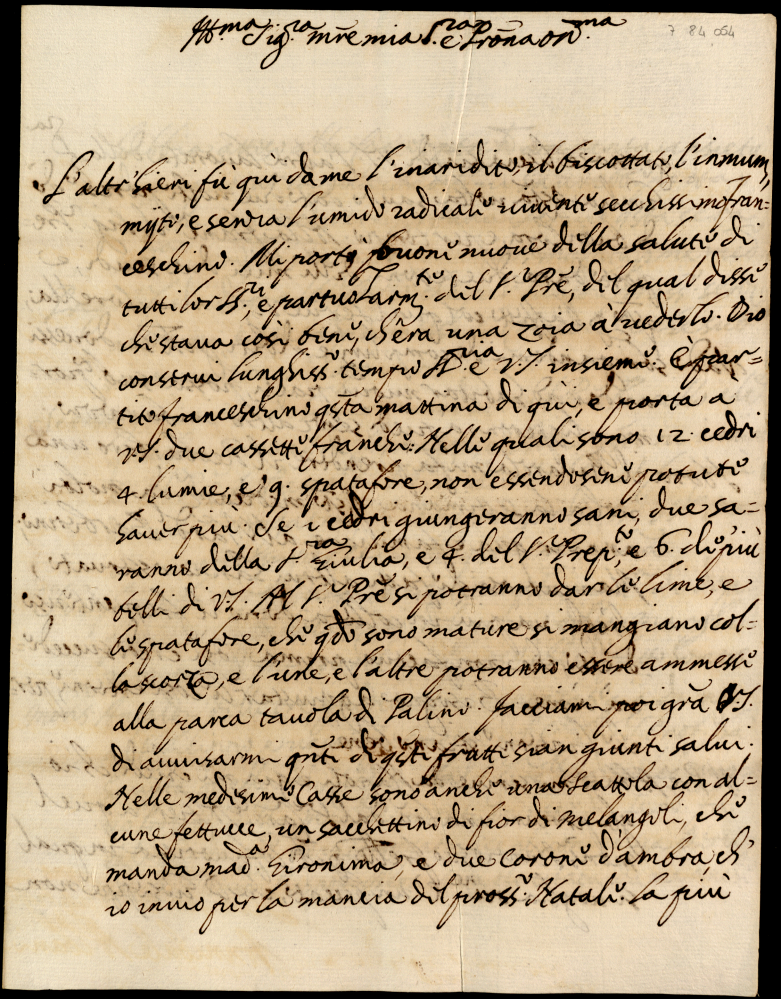 Ill.ma Sig.ra m̃re mia S.ra e Prõna oss.ma
7 84 054
L'altr'hieri fù quì da me l'inaridito, il biscottato, l'inmum,
myto, e senza l'umido radicale vivente secchissimo Fran=
ceschino. Mi portò buone nuove della salute di
tutti lor SS.ri, e particolarm.te del S.r Pr̃e, del qual disse
che stava così bene, ch'era una zoia à vederlo. Dio
conservi lunghiss.o tempo e VS. insieme. È par=
tito Franceschino q̃sta mattina di quì, e porta a
VS. due cassette franche. Nelle quali sono 12. cedri
4. lumie, e 9. spatafore, non essendosene potute
haver più. Se i cedri giungeranno sani, due sa=
ranno della S.ra Giulia, e 4. del S.r Prep.to, e 6. de più
belli di VS. Al S.r Pr̃e si potranno dar le lime, e
le spatafore, che q̃do sono mature si mangiano col=
la scorza, e l'une, e l'altre potranno essere ammesse
alla parca tavola di Palino. Facciami poi gr̃a VS.
di avvisarmi q̃nti di q̃sti frutti sian giunti salvi.
Nelle medesime Casse sono anche una Scattola con al=
cune fettucce, un sacchettino di fior di melangoli, che
manda mad.a Gironima, e due corone d'ambra, ch'
io invio per la mancia del pross.o Natale. La più